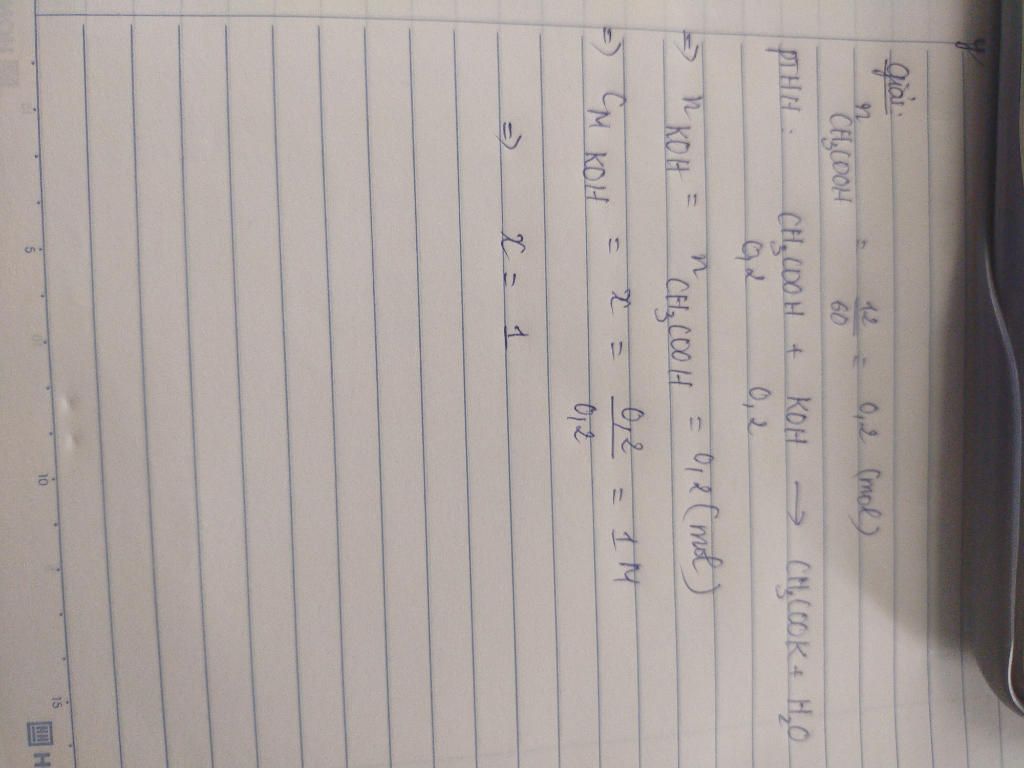 giải:
n CH3COOH = 12/60 = 0,2 (mol)
PTHH: CH3COOH + KOH → CH3COOK + H2O
0,2 0,2
=) n KOH = n CH3COOH = 0,2 (mol)
=) CM KOH = x = 0,2/0,2 = 1 M
=) x = 1
5 10 15
H